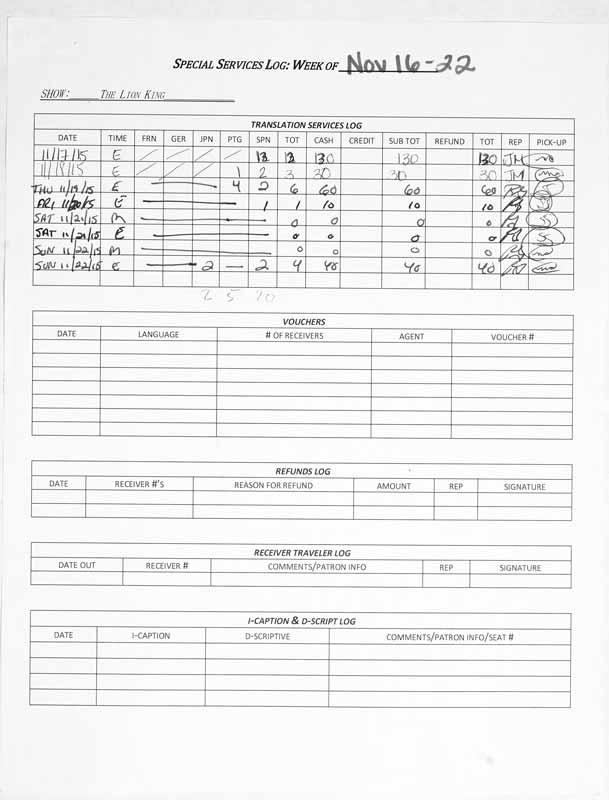 SPECIAL SERVICES LOG: WEEK OF Nov 16-22
SHOW: THE LION KING
TRANSLATION SERVICES LOG
DATE TIME FRN GER JPN PTG SPN TOT CASH CREDIT SUB TOT REFUND TOT REP PICK-UP
11/17/15 E 13 13 130 130 130 JM
11/18/15 E 1 2 3 30 30 30 JM
THU 11/19/15 E 4 2 6 60 60 60
FRI 11/20/15 E 1 1 10 10 10
SAT 11/21/15 M 0 0 0 0
SAT 11/21/15 E 0 0 0 0
SUN 11/22/15 M 0 0 0 0
SUN 11/22/15 E 2 — 2 4 40 40 40
2 5 20
VOUCHERS
DATE LANGUAGE # OF RECEIVERS AGENT VOUCHER #
REFUNDS LOG
DATE RECEIVER #'S REASON FOR REFUND AMOUNT REP SIGNATURE
RECEIVER TRAVELER LOG
DATE OUT RECEIVER # COMMENTS/PATRON INFO REP SIGNATURE
I-CAPTION & D-SCRIPT LOG
DATE I-CAPTION D-SCRIPTIVE COMMENTS/PATRON INFO/SEAT #